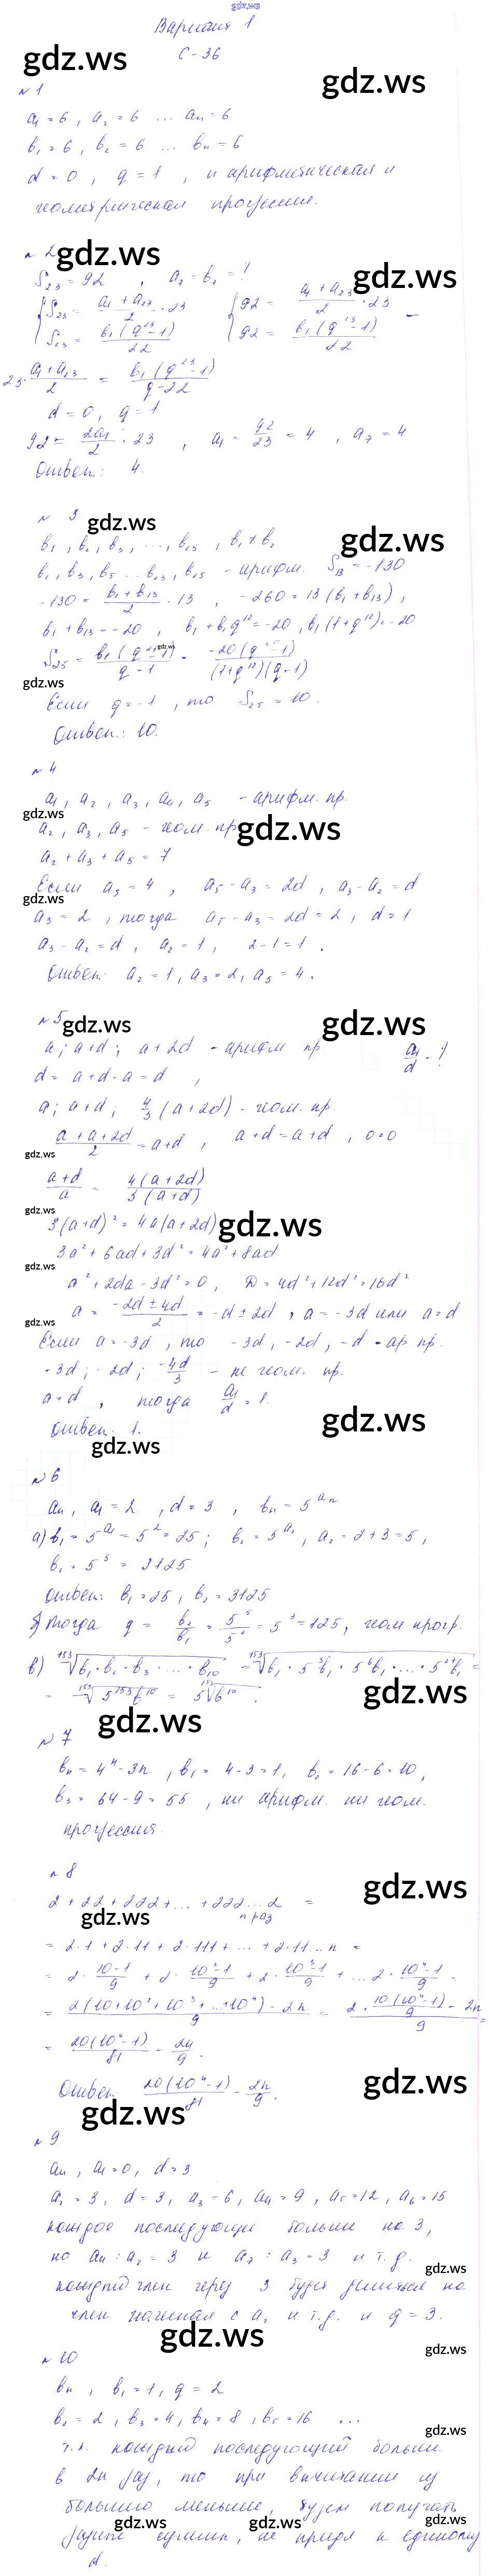 gdz.ws
Вариант 1
С-36
gdz.ws
gdz.ws
№1
a₁ = 6, a₂ = 6 ... aₙ = 6
b₁ = 6, b₂ = 6 ... bₙ = 6
d = 0, q = 1, и арифметическая и
геометрическая прогрессии.
№2
gdz.ws
gdz.ws
S₂₃ = 92, a₇ = b₇ = ?
{S₂₃ = (a₁ + a₂₃)/2 · 23 {92 = (a₁ + a₂₃)/2 · 23
{S₂₃ = b₁(q²³-1)/22 {92 = b₁(q²³-1)/22
23 · (a₁ + a₂₃)/2 = b₁(q²³-1)/q-22
d = 0, q = 1
92 = 2a₁/2 · 23, a₁ = 92/23 = 4, a₇ = 4
Ответ: 4.
№ 3
gdz.ws
gdz.ws
b₁, b₂, b₃, ..., b₂₅, b₁ ≠ b₂
b₁, b₃, b₅ ... b₂₃, b₂₅ - арифм. S₁₃ = -130
-130 = (b₁ + b₁₃)/2 · 13, -260 = 13(b₁ + b₁₃),
b₁ + b₁₃ = -20, b₁ + b₁q¹² = -20, b₁(1+q¹²) = -20
gdz.ws
S₂₅ = b₁(q²⁵-1)/(q-1) = -20(q²⁵-1)/(1+q¹²)(q-1)
gdz.ws
Если q = -1, то S₂₅ = 10.
Ответ: 10.
№4
a₁, a₂, a₃, a₄, a₅ - арифм. пр.
gdz.ws
a₂, a₃, a₅ - геом. пр
gdz.ws
a₂ + a₃ + a₅ = 7
Если a₅ = 4, a₅ - a₃ = 2d, a₃ - a₂ = d
gdz.ws
a₃ = 2, тогда a₅ - a₃ = 2d = 2, d = 1
a₃ - a₂ = d, a₂ = 1, 2-1 = 1.
Ответ: a₂ = 1, a₃ = 2, a₅ = 4.
№5
gdz.ws
gdz.ws
a; a+d; a+2d - арифм пр a₁/d - ?
d = a+d-a = d,
a; a+d; 4/3(a+2d) - геом. пр.
(a+a+2d)/2 = a+d, a+d = a+d, 0=0
gdz.ws
(a+d)/a = 4(a+2d)/3(a+d)
gdz.ws
3(a+d)² = 4a(a+2d)
gdz.ws
3a² + 6ad + 3d² = 4a² + 8ad
gdz.ws
a² + 2da - 3d² = 0, D = 4d² + 12d² = 16d²
a = (-2d ± 4d)/2 = -d ± 2d, a = -3d или a = d
gdz.ws
Если a = -3d, то -3d, -2d, -d - ар пр.
-3d; -2d; -4d/3 - не геом. пр.
a = d, тогда a₁/d = 1.
gdz.ws
Ответ: 1.
gdz.ws
№6
aₙ, a₁ = 2, d = 3, bₙ = 5^aₙ
а) b₁ = 5^a₁ = 5² = 25; b₂ = 5^a₂, a₂ = 2+3 = 5,
b₂ = 5⁵ = 3125
Ответ: b₁ = 25, b₂ = 3125
б) Тогда q = b₂/b₁ = 5⁵/5² = 5³ = 125, геом. прогр.
в) ¹⁵³√(b₁ · b₂ · b₃ · ... · b₁₀) = ¹⁵³√(b₁ · 5³b₁ · 5⁶b₁ · ... · 5²⁷b₁) =
= ¹⁵³√(5¹⁵³b¹⁰) = 5 ¹⁵³√b¹⁰.
gdz.ws
gdz.ws
№ 7
bₙ = 4ⁿ - 3n, b₁ = 4-3 = 1, b₂ = 16-6 = 10,
b₃ = 64-9 = 55, ни арифм. ни геом.
прогрессия.
№8
gdz.ws
2 + 22 + 222 + ... + 222...2 =
gdz.ws
n раз
= 2·1 + 2·11 + 2·111 + ... + 2·11...n =
= 2 · (10-1)/9 + 2 · (10²-1)/9 + 2 · (10³-1)/9 + ... 2 · (10ⁿ-1)/9 =
= (2(10+10²+10³+...+10ⁿ) - 2n)/9 = (2 · 10(10ⁿ-1)/9 - 2n)/9 =
= 20(10ⁿ-1)/81 - 2n/9.
Ответ 20(10ⁿ-1)/81 - 2n/9.
gdz.ws
gdz.ws
№9
aₙ, a₁ = 0, d = 3
a₂ = 3, d = 3, a₃ = 6, a₄ = 9, a₅ = 12, a₆ = 15
каждое последующие больше на 3,
но a₄ : a₂ = 3 и a₇ : a₃ = 3 и т.д.
gdz.ws
каждый член через 3 будет делиться на
член начиная с a₂ и т.д. и q = 3.
gdz.ws
gdz.ws
№10
bₙ, b₁ = 1, q = 2
b₂ = 2, b₃ = 4, b₄ = 8, b₅ = 16 ...
gdz.ws
т.к. каждый последующий больше
в 2n раз, то при вычитании из
большего меньшие, будем получать
gdz.ws
gdz.ws
gdz.ws
разные суммы, не придя к единому
d.